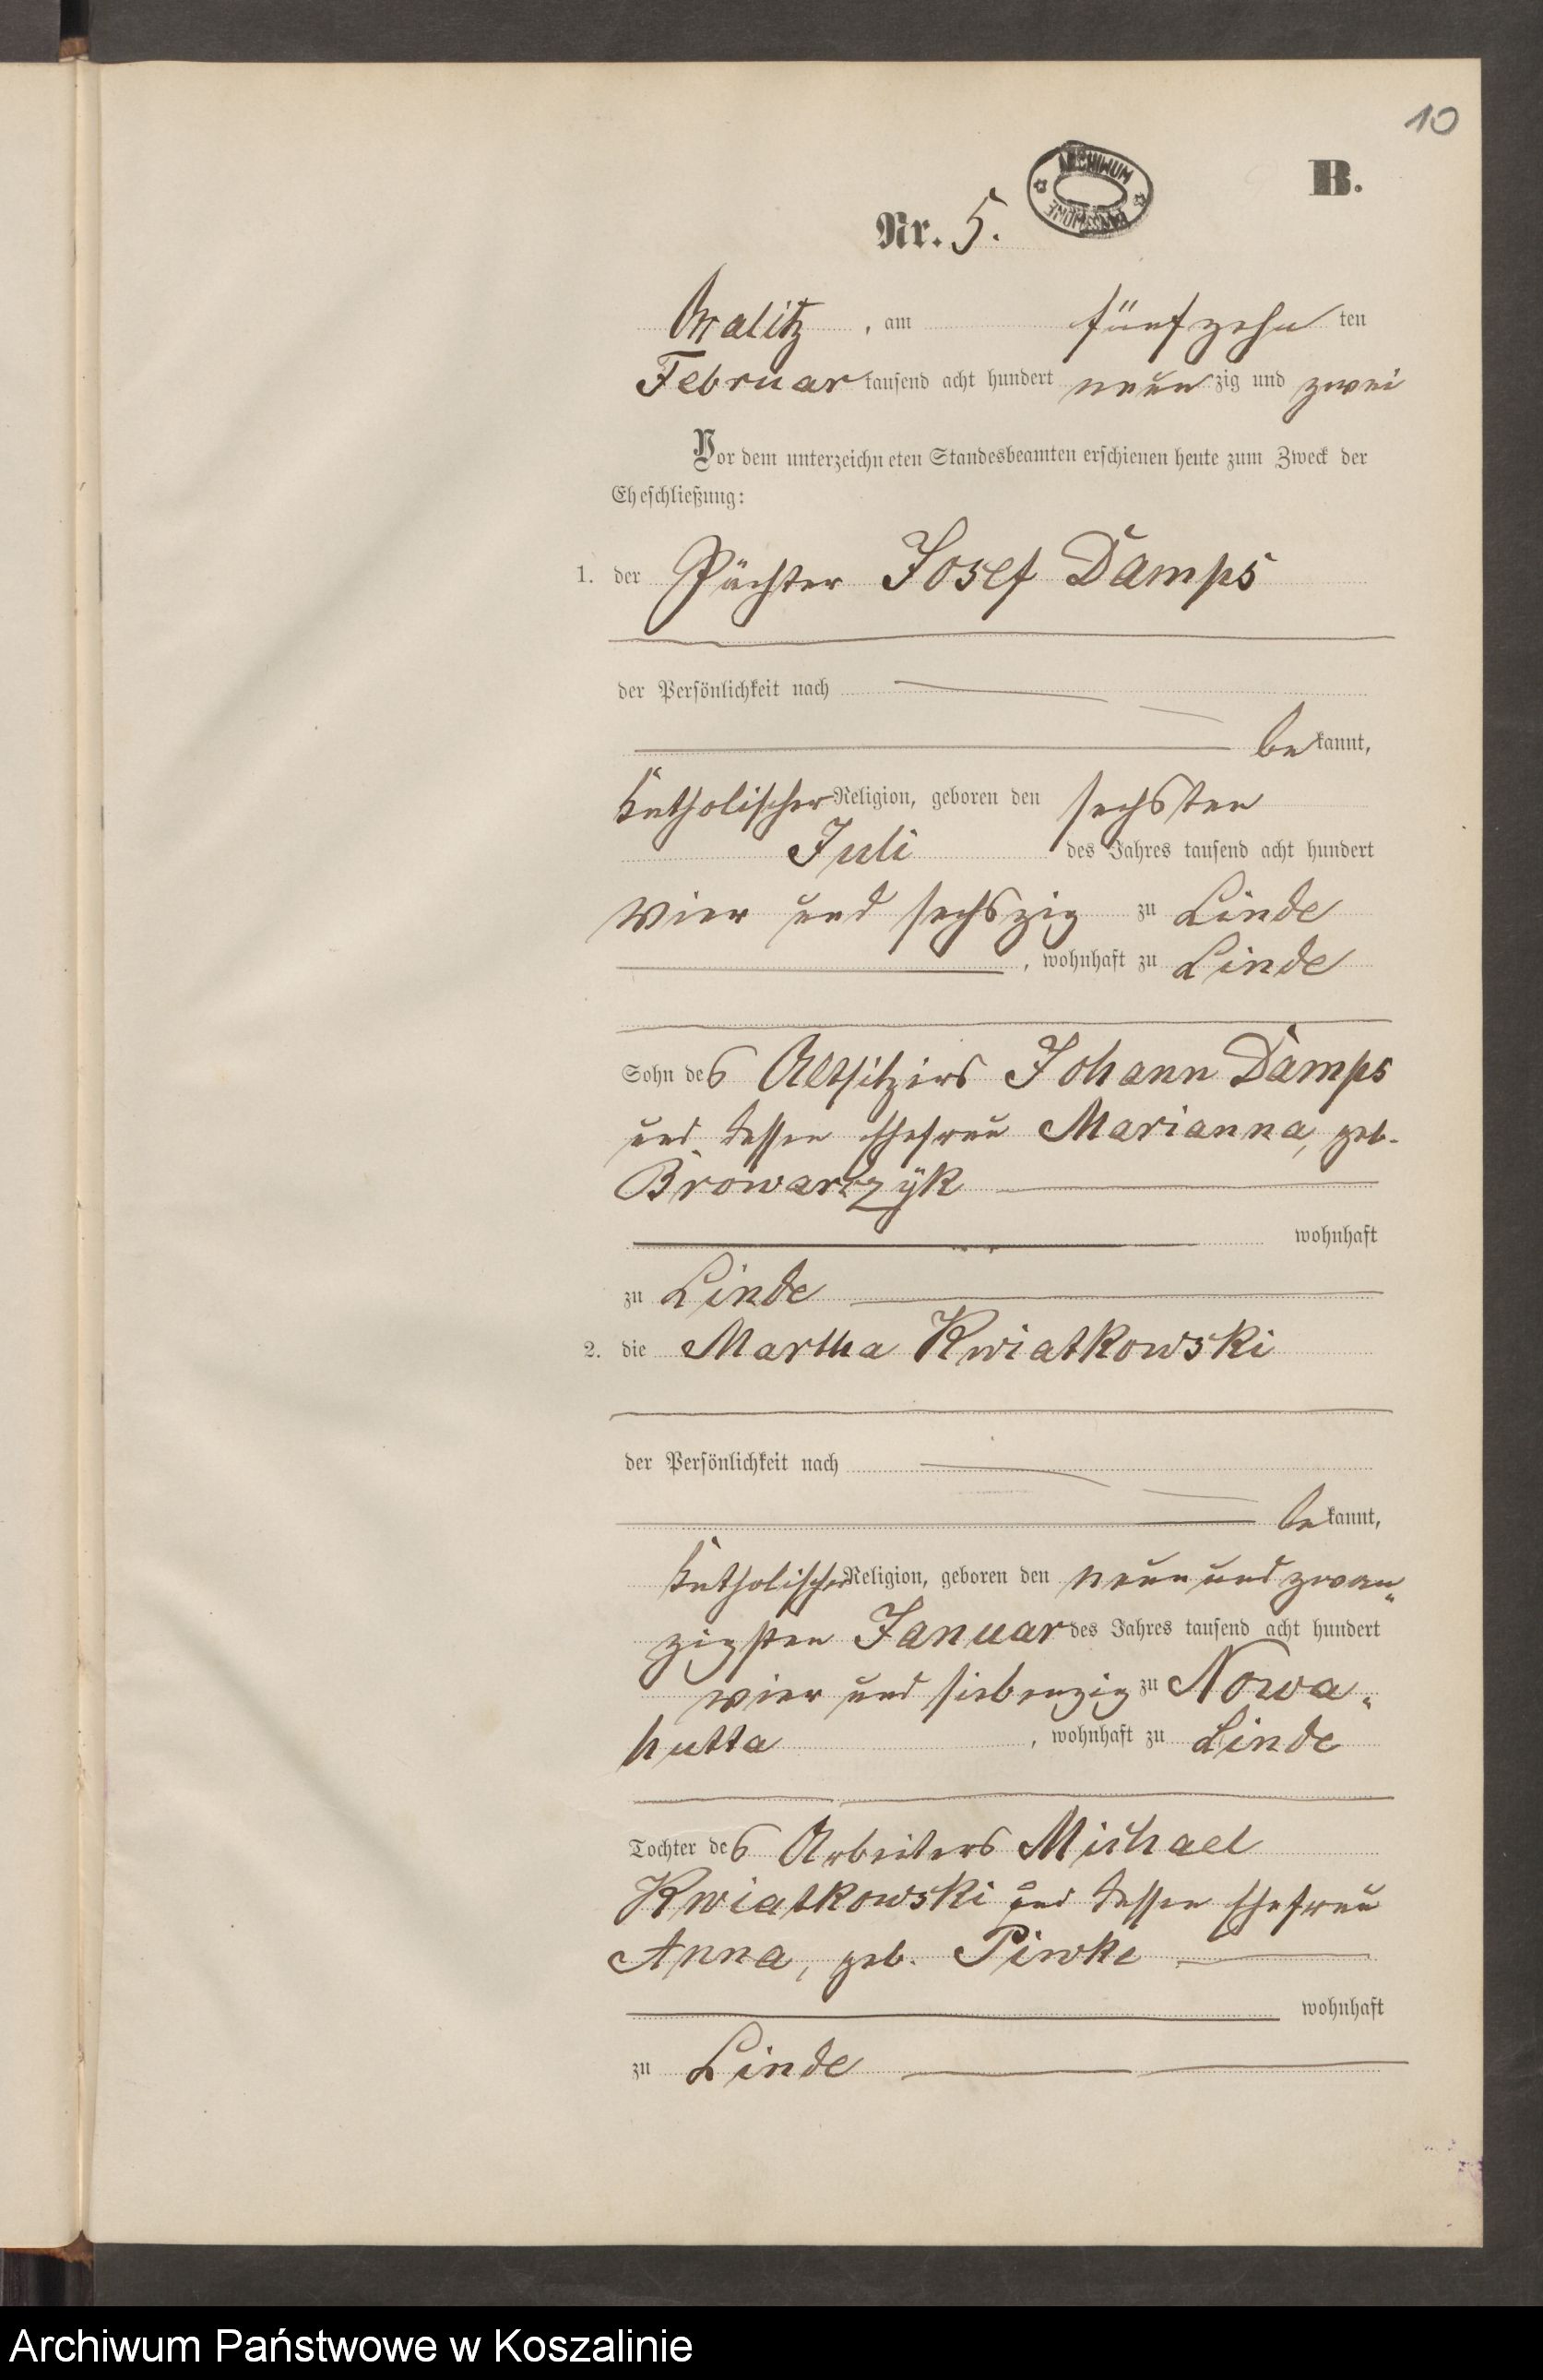 10
B.
ARCHIWUM PAŃSTWOWE
Nr. 5.
, am fünfzehn ten
Februar tausend acht hundert neun zig und zwei
Vor dem unterzeichneten Standesbeamten erschienen heute zum Zweck der
Eheschließung:
1. der Pächter Josef Damps
der Persönlichkeit nach
be kannt,
katholischer Religion, geboren den sechsten
Juli des Jahres tausend acht hundert
vier und sechszig zu Linde
, wohnhaft zu Linde
Sohn des Altsitzers Johann Damps
und dessen Ehefrau Marianna, geb.
Browarczyk
wohnhaft
zu Linde
2. die Martha Kwiatkowski
der Persönlichkeit nach
be kannt,
katholischer Religion, geboren den neun und zwan„
zigsten Januar des Jahres tausend acht hundert
vier und siebenzig zu Nowa„
hutta , wohnhaft zu Linde
Tochter des Arbeiters Michael
Kwiatkowski und dessen Ehefrau
Anna, geb. Piwke
wohnhaft
zu Linde
Archiwum Państwowe w Koszalinie